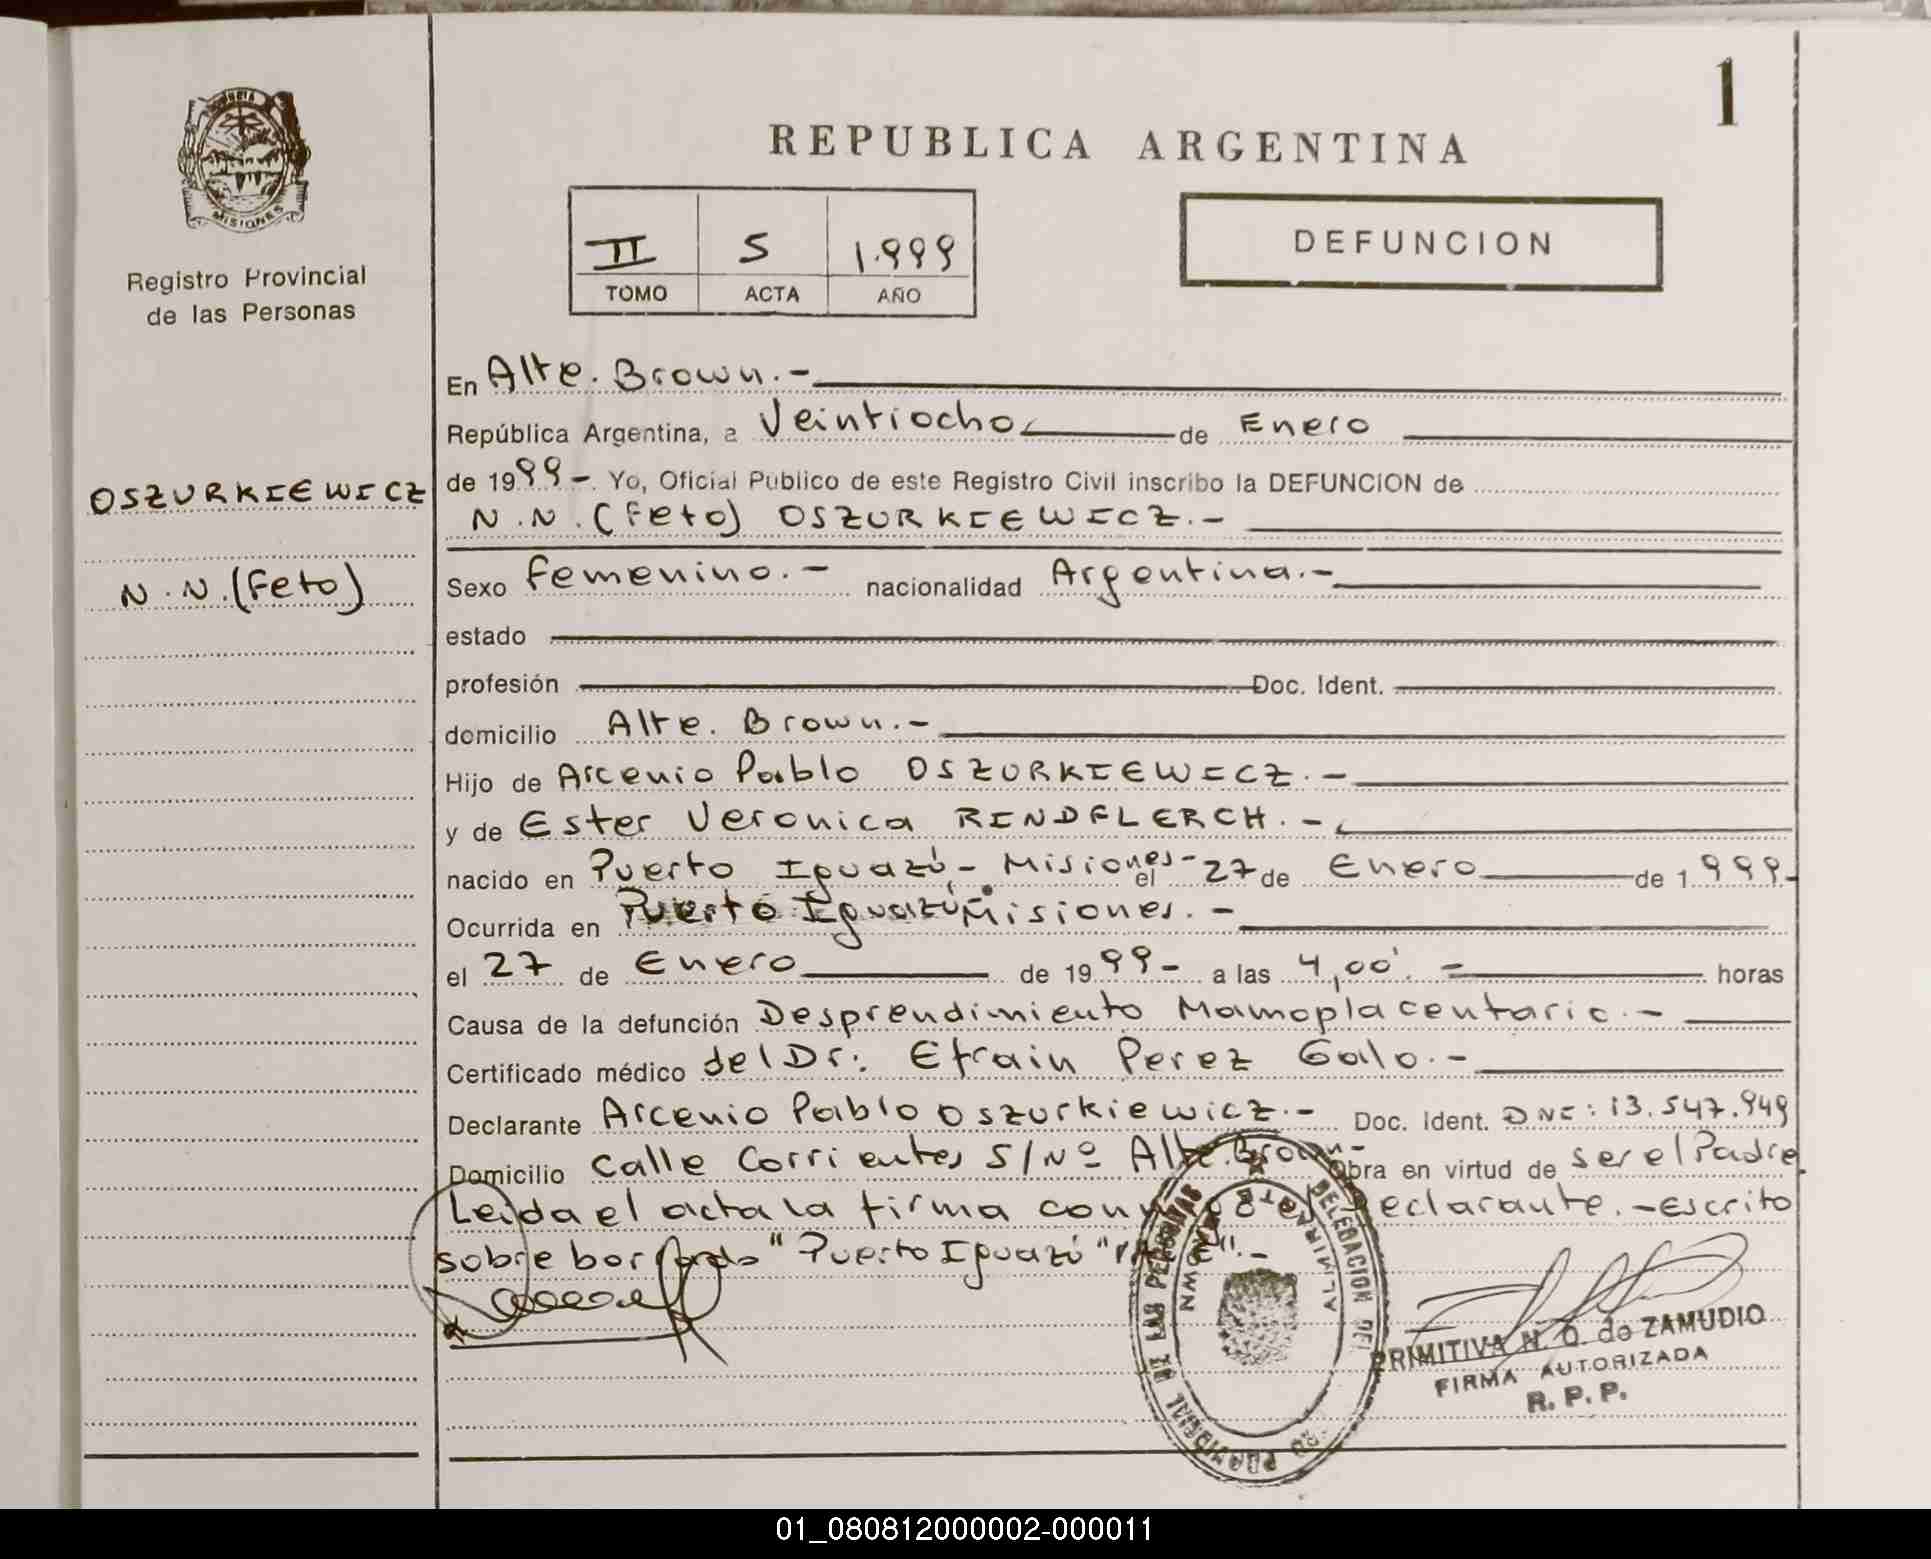 1
PROVINCIA
MISIONES
Registro Provincial
de las Personas
OSZURKIEWICZ
N.N.(Feto)
REPUBLICA ARGENTINA
II 5 1.999
TOMO ACTA AÑO
DEFUNCION
En Alte. Brown.-
República Argentina, a Veintiocho de Enero
de 1999-. Yo, Oficial Público de este Registro Civil inscribo la DEFUNCION de
N.N.(Feto) OSZURKIEWICZ.-
Sexo Femenino.- nacionalidad Argentina.-
estado
profesión Doc. Ident.
domicilio Alte. Brown.-
Hijo de Arcenio Pablo OSZURKIEWICZ.-
y de Ester Veronica RINDFLERCH.-
nacido en Puerto Iguazú- Misiones- el 27 de Enero de 1.999.-
Ocurrida en Puerto Iguazú-Misiones.-
el 27 de Enero de 1999- a las 4,00'.= horas
Causa de la defunción Desprendimiento Mamoplacentario.-
Certificado médico del Dr: Efrain Perez Galo.-
Declarante Arcenio Pablo Oszurkiewicz.- Doc. Ident. DNI: 13.547.949
Domicilio calle Corrientes S/Nº Alte.Brown- Obra en virtud de ser el Padre.
Leida el acta la firma conmigo el Declarante.-Escrito
sobre borrado "Puerto Iguazú"
PRIMITIVA N. O. de ZAMUDIO
FIRMA AUTORIZADA
R. P. P.
DELEGACION DEL
PROVINCIAL DE LAS PERSONAS
ALMIRANTE BROWN
01_080812000002-000011